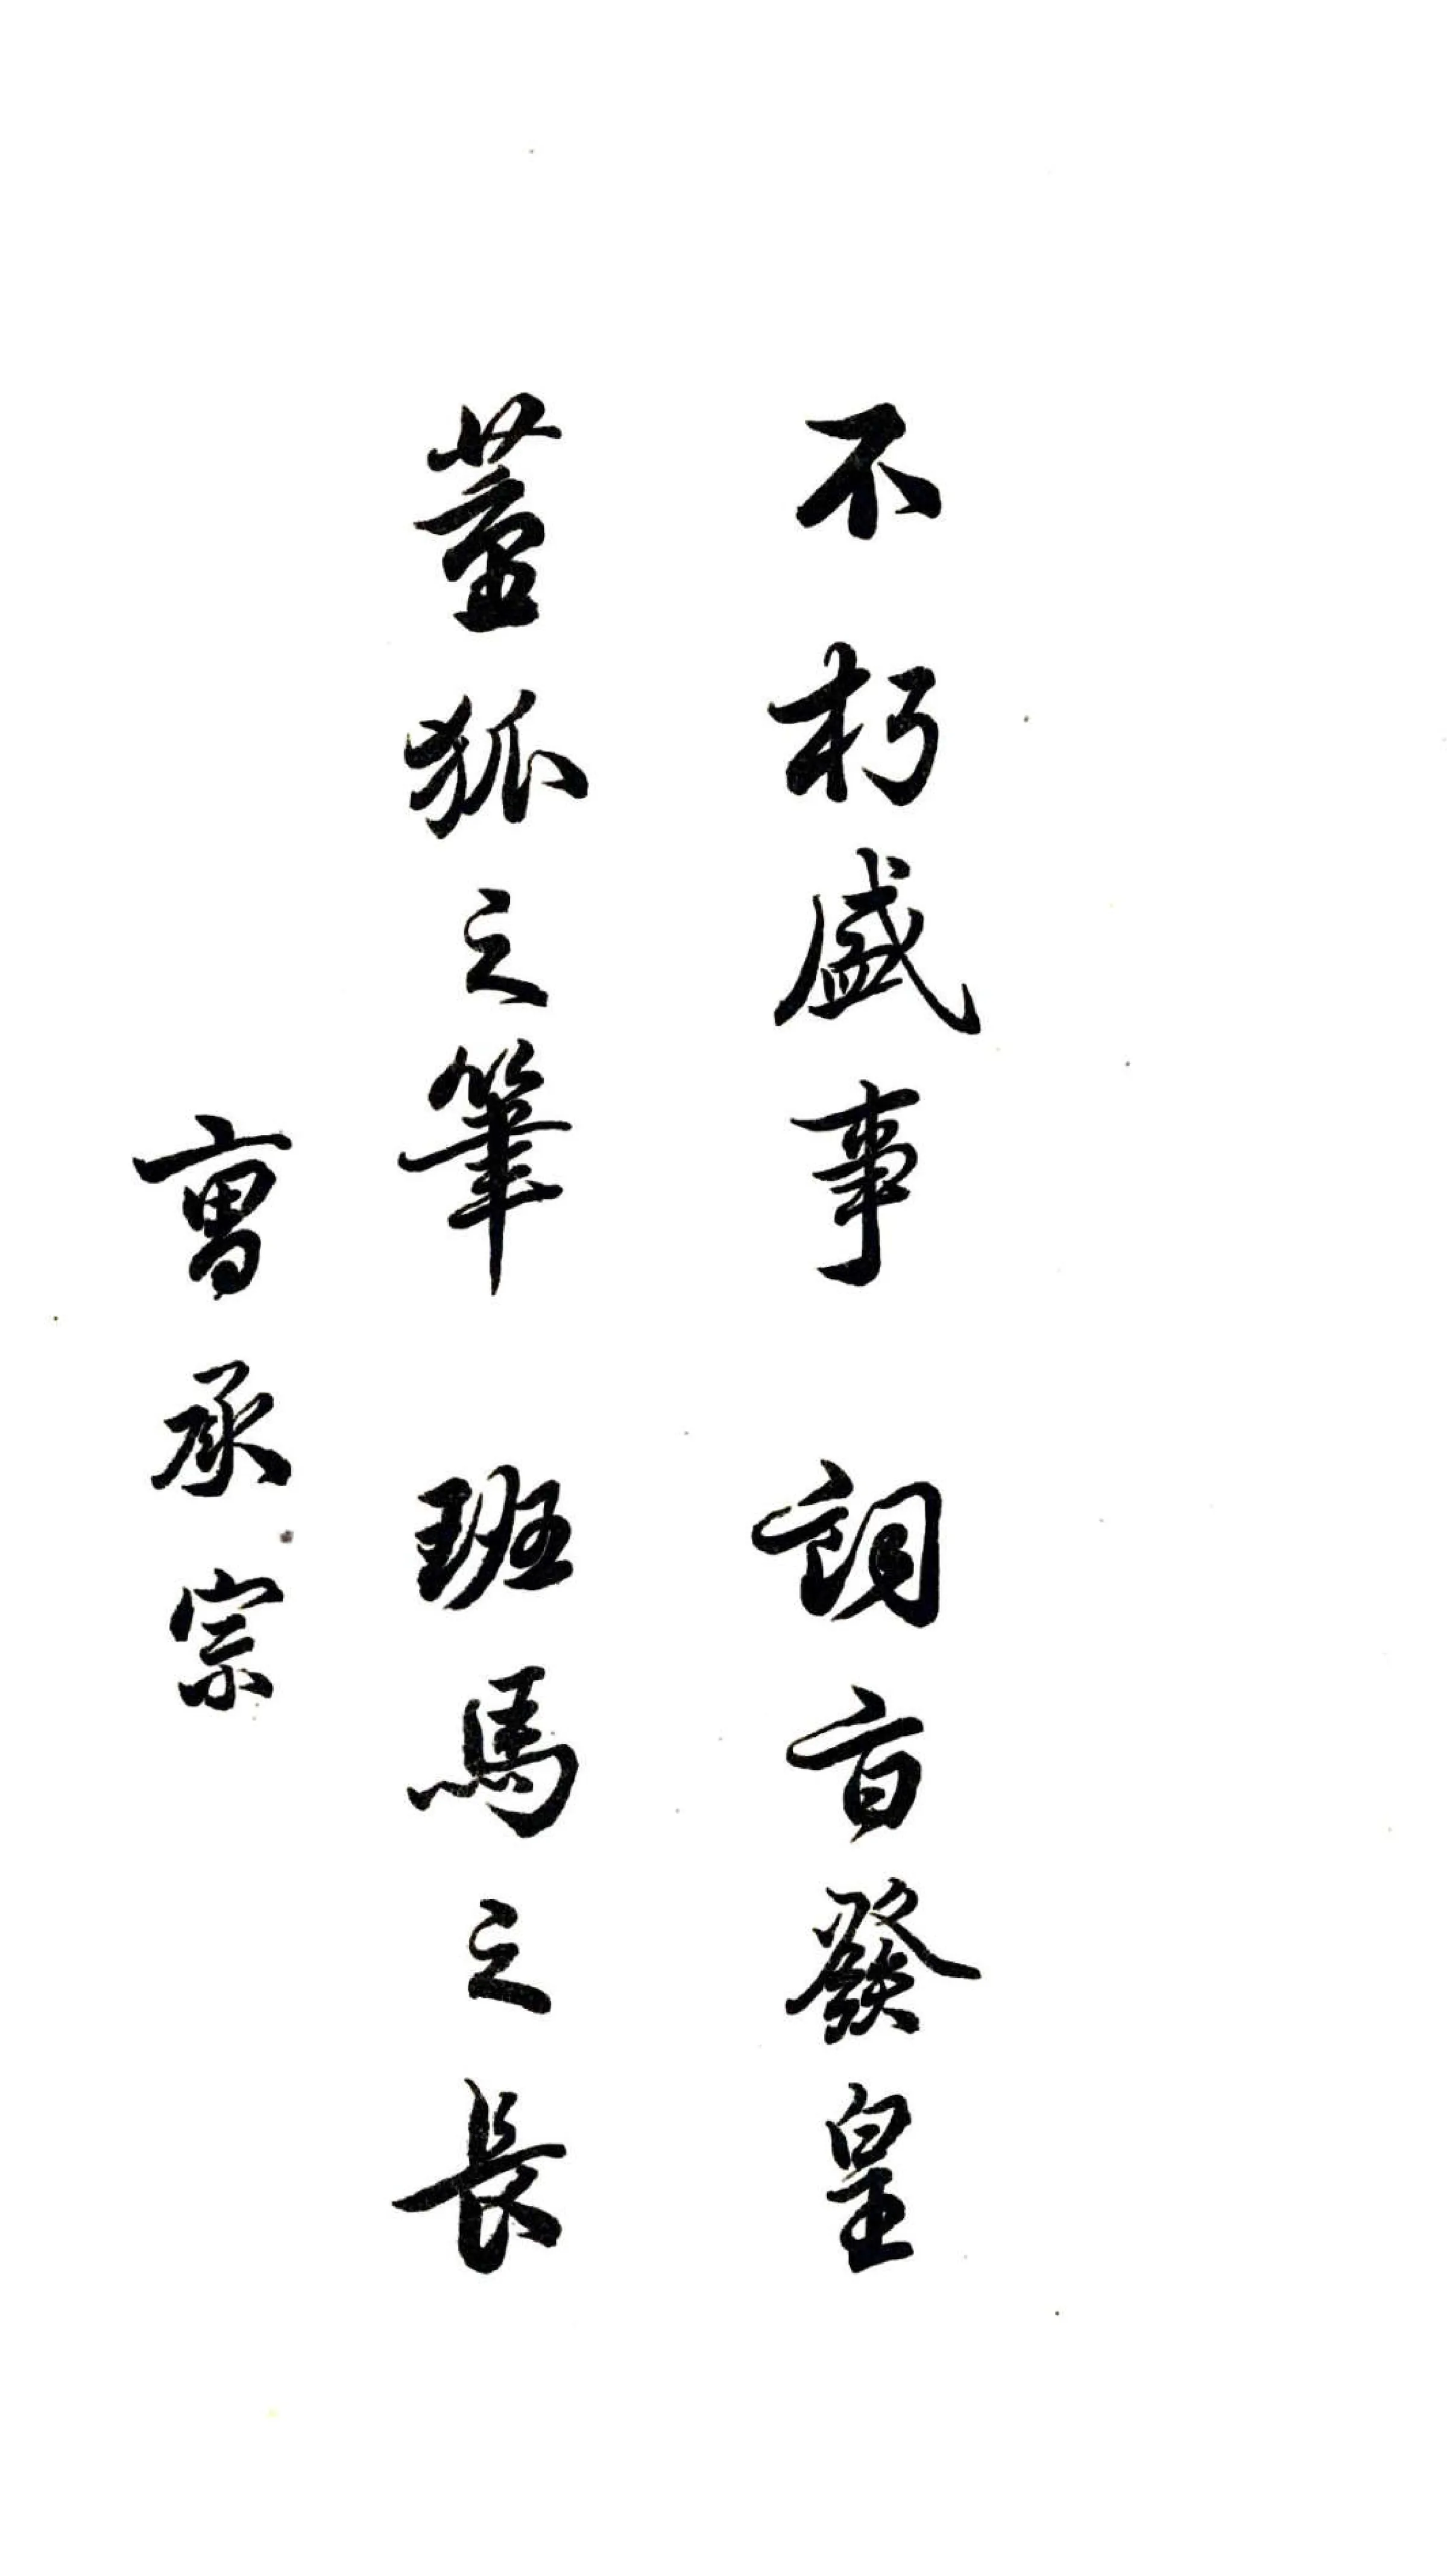 不朽盛事 詞旨發皇
董狐之筆 班馬之長
曹承宗